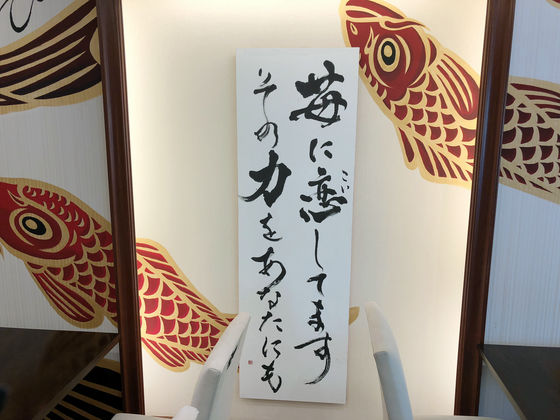 苺に恋してます
こい
その力をあなたにも